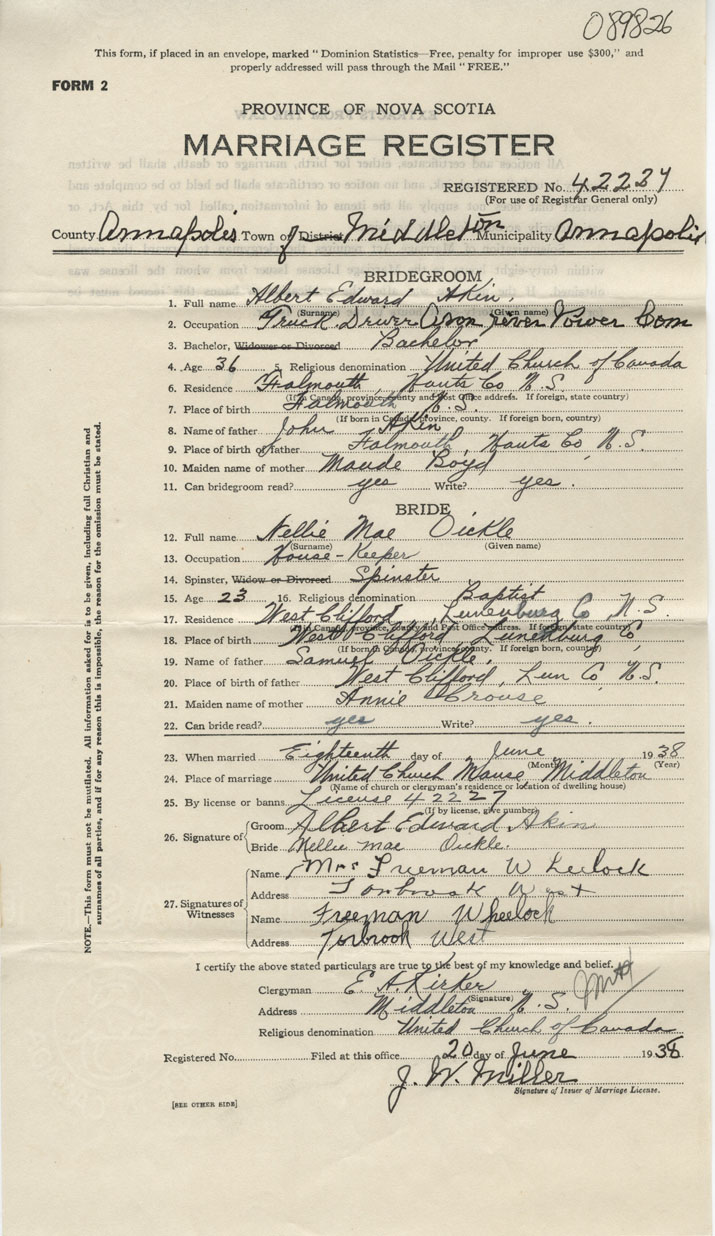 089826
This form, if placed in an envelope, marked "Dominion Statistics—Free, penalty for improper use $300," and
properly addressed will pass through the Mail "FREE."
FORM 2
PROVINCE OF NOVA SCOTIA
MARRIAGE REGISTER
REGISTERED No. 42227
(For use of Registrar General only)
County Annapolis Town of District Middleton Municipality Annapolis
BRIDEGROOM
1. Full name Albert Edward Akin.
(Surname) (Given name)
2. Occupation Truck Driver Avon River Power Com
3. Bachelor, Widower or Divorced Bachelor
4. Age 36 5. Religious denomination United Church of Canada
6. Residence Falmouth, Hants Co N.S.
(If in Canada, province, county and Post Office address. If foreign, state country)
7. Place of birth Falmouth N.S.
(If born in Canada, province, county. If foreign born, country)
8. Name of father John Akin
9. Place of birth of father Falmouth, Hants Co, N.S.
10. Maiden name of mother Maude Boyd
11. Can bridegroom read? yes Write? yes.
BRIDE
12. Full name Nellie Mae Oickle
(Surname) (Given name)
13. Occupation House-Keeper
14. Spinster, Widow or Divorced Spinster
15. Age 23 16. Religious denomination Baptist
17. Residence West Clifford, Lunenburg Co, N.S.
(If in Canada, province, county and Post Office address. If foreign, state country)
18. Place of birth West Clifford Lunenburg Co,
(If born in Canada, province, county. If foreign born, country)
19. Name of father Samuel Oickle,
20. Place of birth of father West Clifford, Lun Co, N.S.
21. Maiden name of mother Annie Crouse
22. Can bride read? yes Write? yes.
23. When married Eighteenth day of June 1938
(Month) (Year)
24. Place of marriage United Church Manse Middleton
(Name of church or clergyman's residence or location of dwelling house)
25. By license or banns License 42227
(If by license, give number)
26. Signature of
Groom Albert Edward Akin
Bride Nellie Mae Oickle.
27. Signatures of Witnesses
Name Mrs Freeman Wheelock
Address Torbrook West
Name Freeman Wheelock
Address Torbrook West
I certify the above stated particulars are true to the best of my knowledge and belief.
Clergyman E. A. Kirker
(Signature)
Address Middleton N.S.
Religious denomination United Church of Canada
Registered No. Filed at this office 20 day of June 1938
J. W. Miller
Signature of Issuer of Marriage License.
[SEE OTHER SIDE]
NOTE.—This form must not be mutilated. All information asked for is to be given, including full Christian and
surnames of all parties, and if for any reason this is impossible, the reason for the omission must be stated.